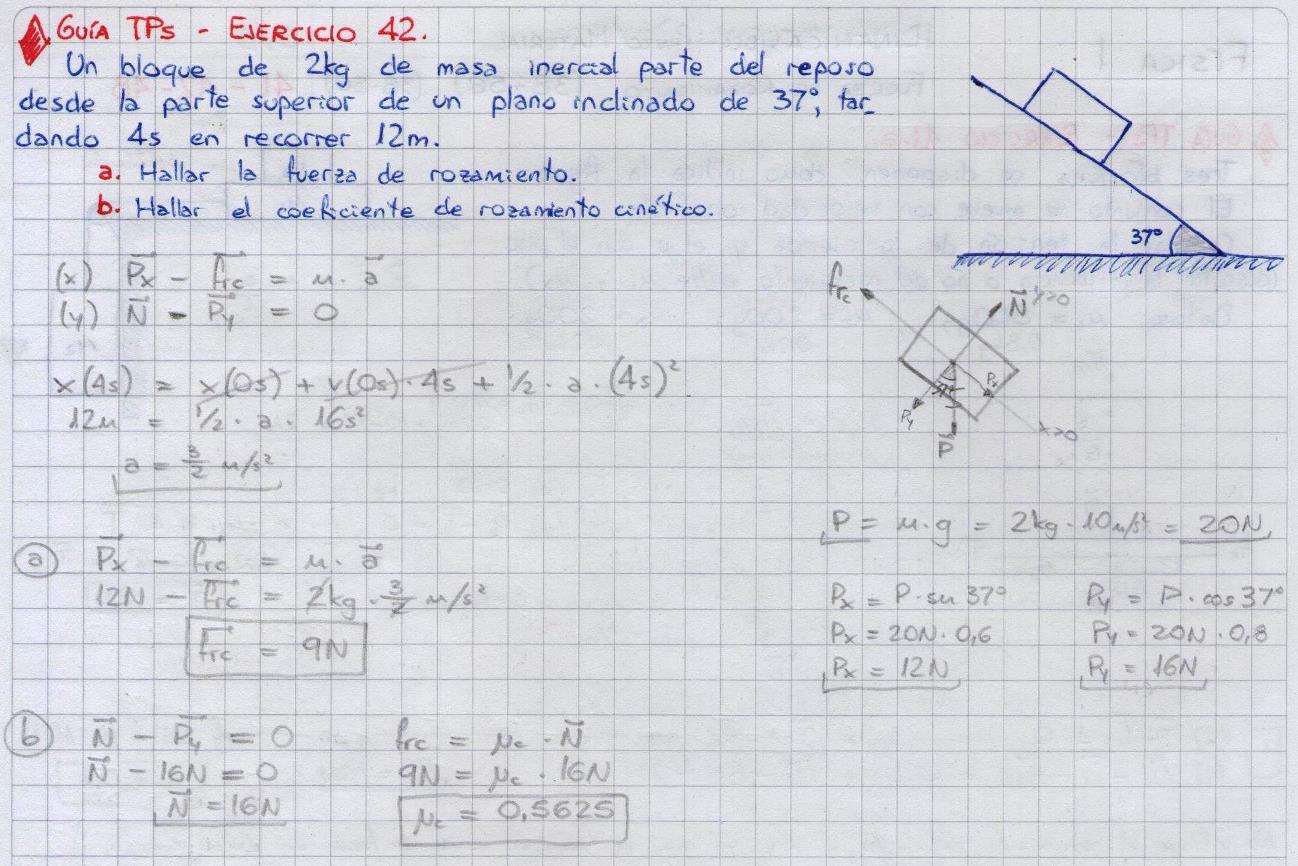 GUÍA TPs - EJERCICIO 42.
Un bloque de 2kg de masa inercial parte del reposo
desde la parte superior de un plano inclinado de 37°, tar_
dando 4s en recorrer 12m.
a. Hallar la fuerza de rozamiento.
b. Hallar el coeficiente de rozamiento cinético.
37°
(x) Px - frc = m. a
(y) N - Py = 0
x(4s) = x(0s) + v(0s). 4s + 1/2 . a . (4s)²
12m = 1/2 . a . 16s²
a = 3/2 m/s²
frc
N y>0
Px
37°
Py
P
x>0
P = m.g = 2kg. 10 m/s² = 20N
Px = P. sen 37°
Px = 20N. 0,6
Px = 12N
Py = P. cos 37°
Py = 20N . 0,8
Py = 16N
a
Px - frc = m. a
12N - frc = 2kg . 3/2 m/s²
frc = 9N
b
N - Py = 0
N - 16N = 0
N = 16N
frc = μc . N
9N = μc . 16N
μc = 0,5625